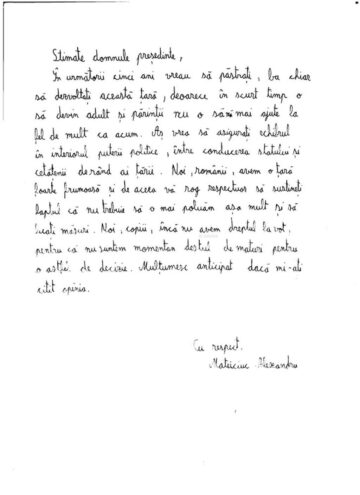 Stimate domnule președinte,
În următorii cinci ani vreau să păstrați, ba chiar
să dezvoltați această țară, deoarece în scurt timp o
să devin adult și părinții nu o să mai ajute la
fel de mult ca acum. Aș vrea să asigurați echilibrul
în interiorul puterii politice, între conducerea statului și
cetățenii de rând ai țării. Noi, românii, avem o țară
foarte frumoasă și de aceea vă rog respectuos să susțineți
faptul că nu trebuie să o mai poluăm așa mult și să
luați măsuri. Noi, copiii, încă nu avem dreptul la vot,
pentru că nu suntem momentan destul de maturi pentru
o astfel de decizie. Mulțumesc anticipat dacă mi-ați
citit opinia.
Cu respect,
Mateiciuc Alexandru